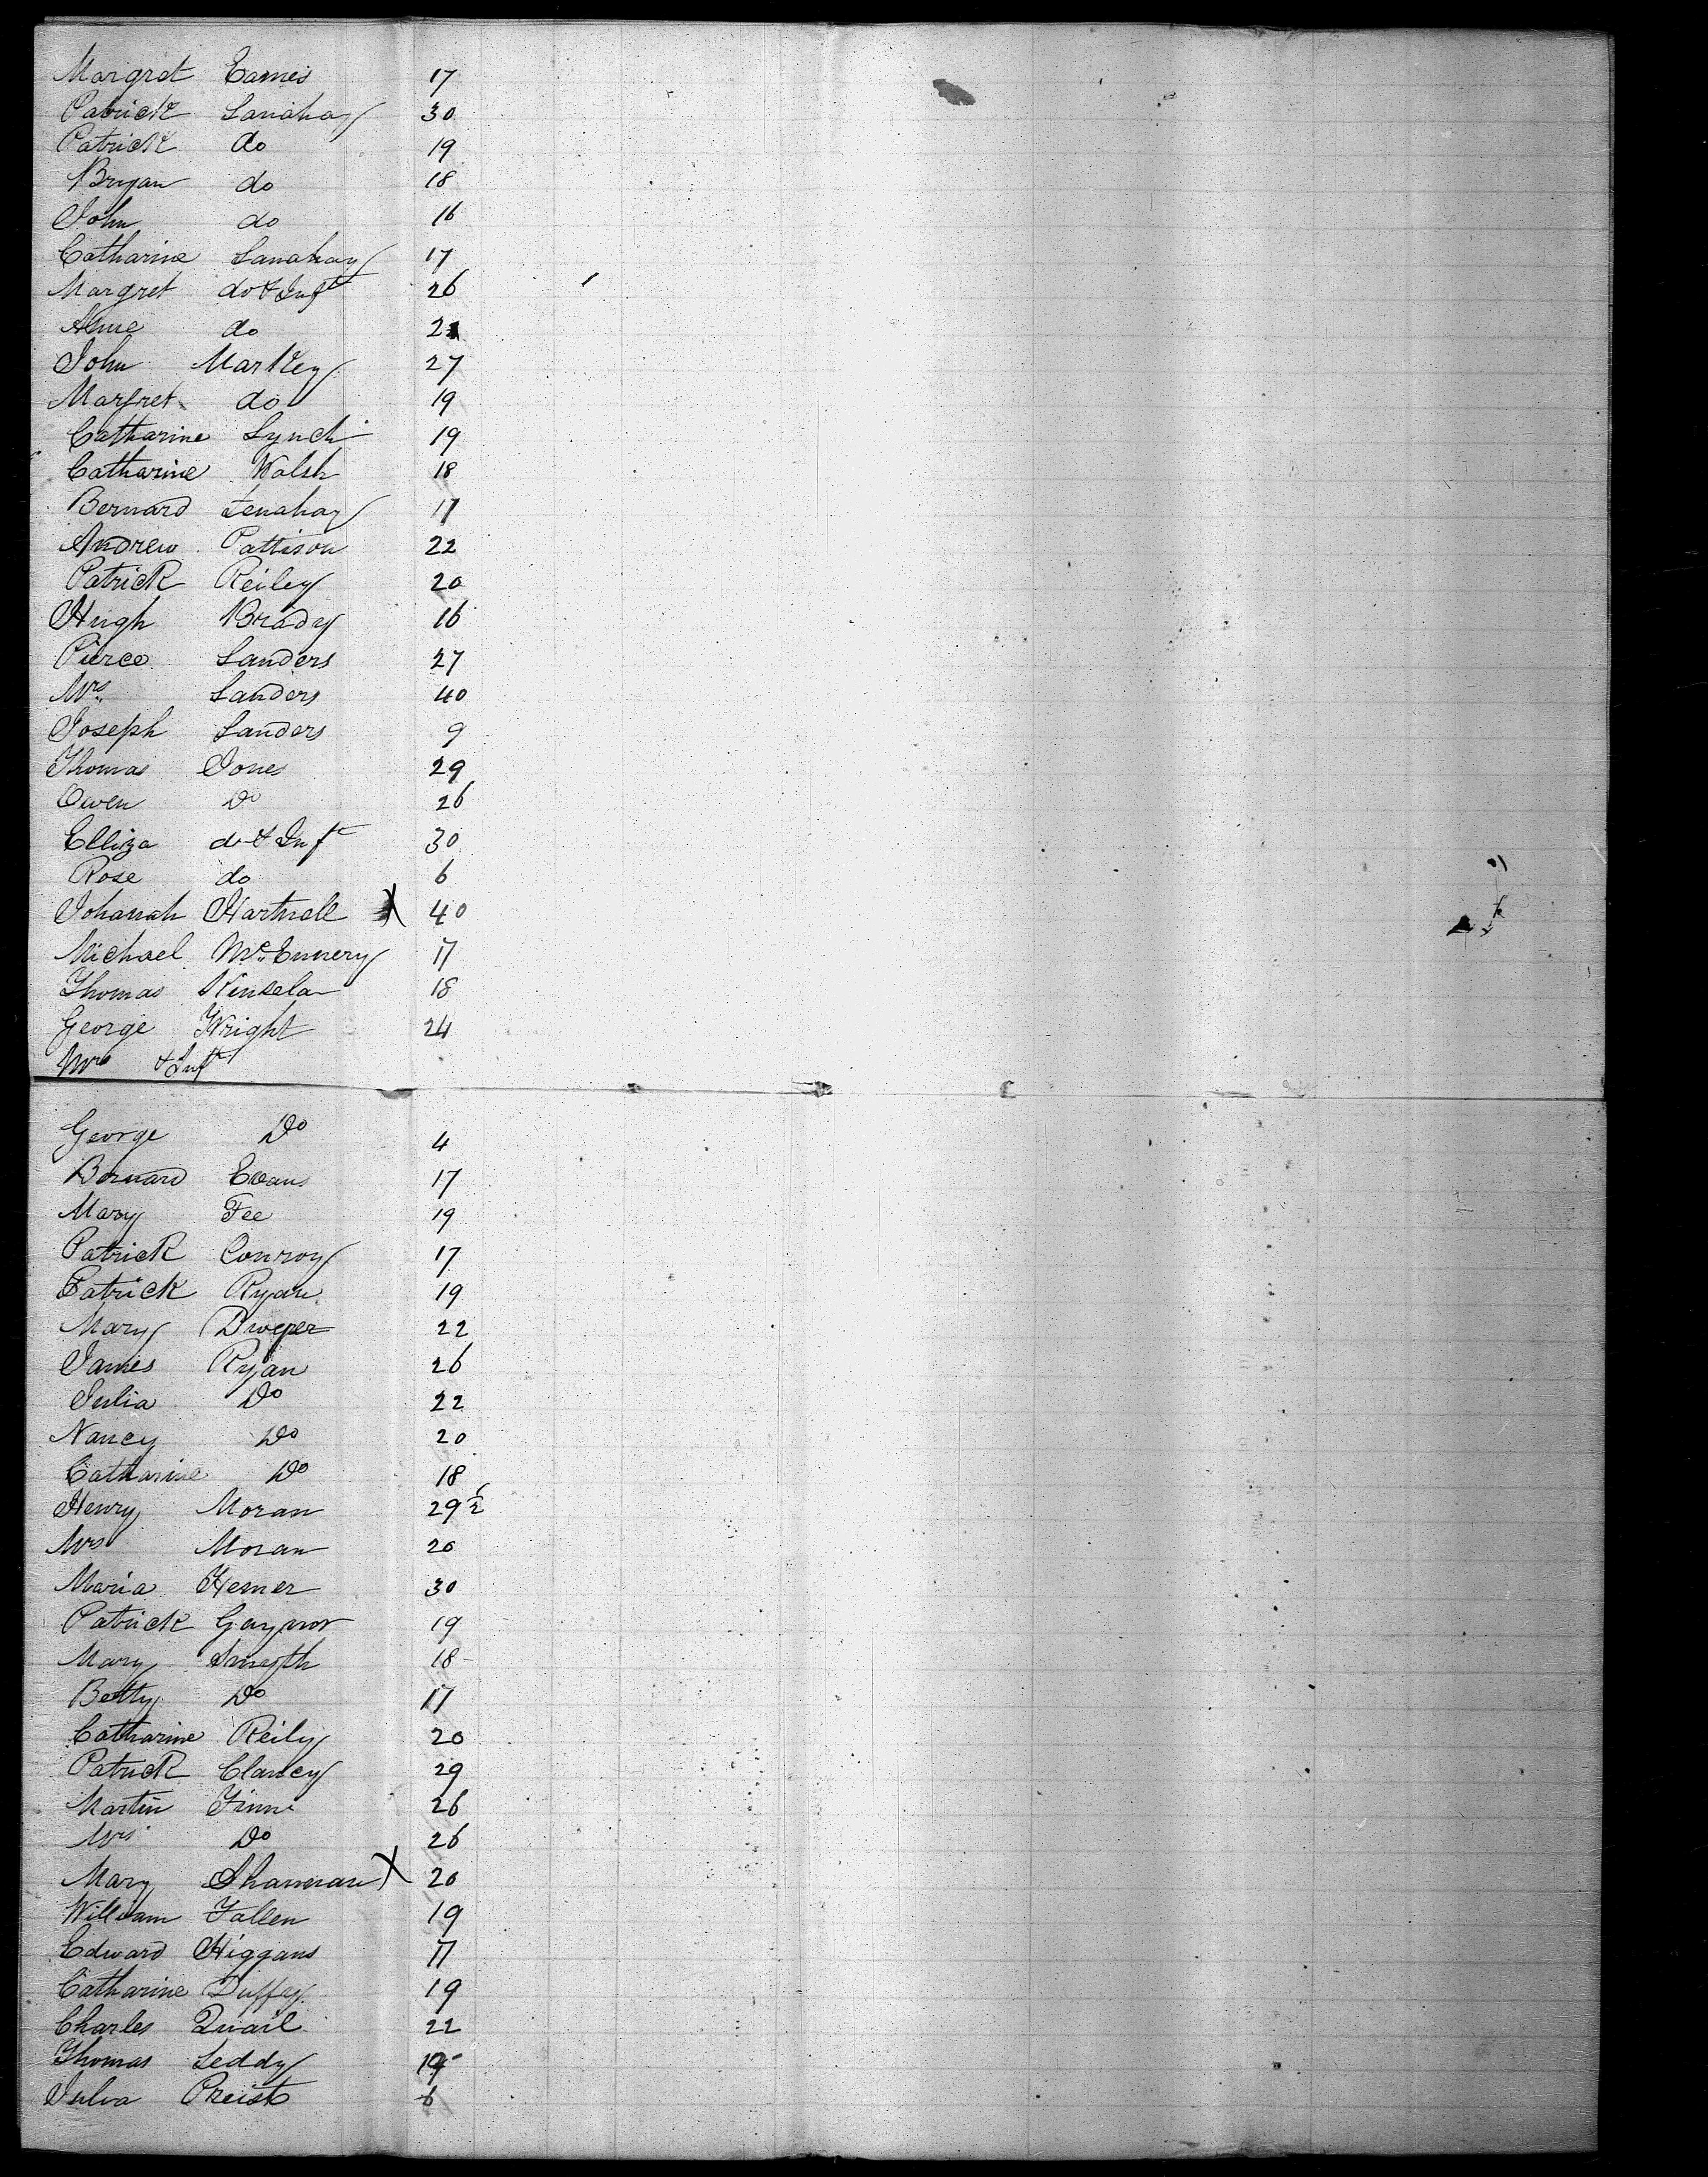 Margret Eames 17
Patrick Lanahay 30
Patrick do 19
Bryan do 18
John do 16
Catharine Lanahay 17
Margret do & Inft 26
Anne do 21
John Markey 27
Margret do 19
Catharine Lynch 19
Catharine Walsh 18
Bernard Lenahay 17
Andrew Pattison 22
Patrick Reiley 20
Hugh Brady 16
Pierce Landers 27
Mrs Landers 40
Joseph Landers 9
Thomas Jones 29
Owen Do 26
Elliza do & Inft 30
Rose do 6
Johanah Hartnell X 40
Michael McEnnery 17
Thomas Kinsela 18
George Wright 24
Mrs & Inft
George Do 4
Bernard Evans 17
Mary Fee 19
Patrick Conroy 17
Patrick Ryan 19
Mary Dwyer 22
James Ryan 26
Julia Do 22
Nancy Do 20
Catharine Do 18
Henry Moran 29½
Mrs Moran 20
Maria 30
Patrick Gaynor 19
Mary Smyth 18
Betty Do 17
Catharine Reily 20
Patrick Clancy 29
Martin Finn 26
Mrs Do 26
Mary Shannan X 20
William Fallen 19
Edward Higgans 17
Catharine Duffey 19
Charles Quail 22
Thomas Leddy 19
Julia Preist 6